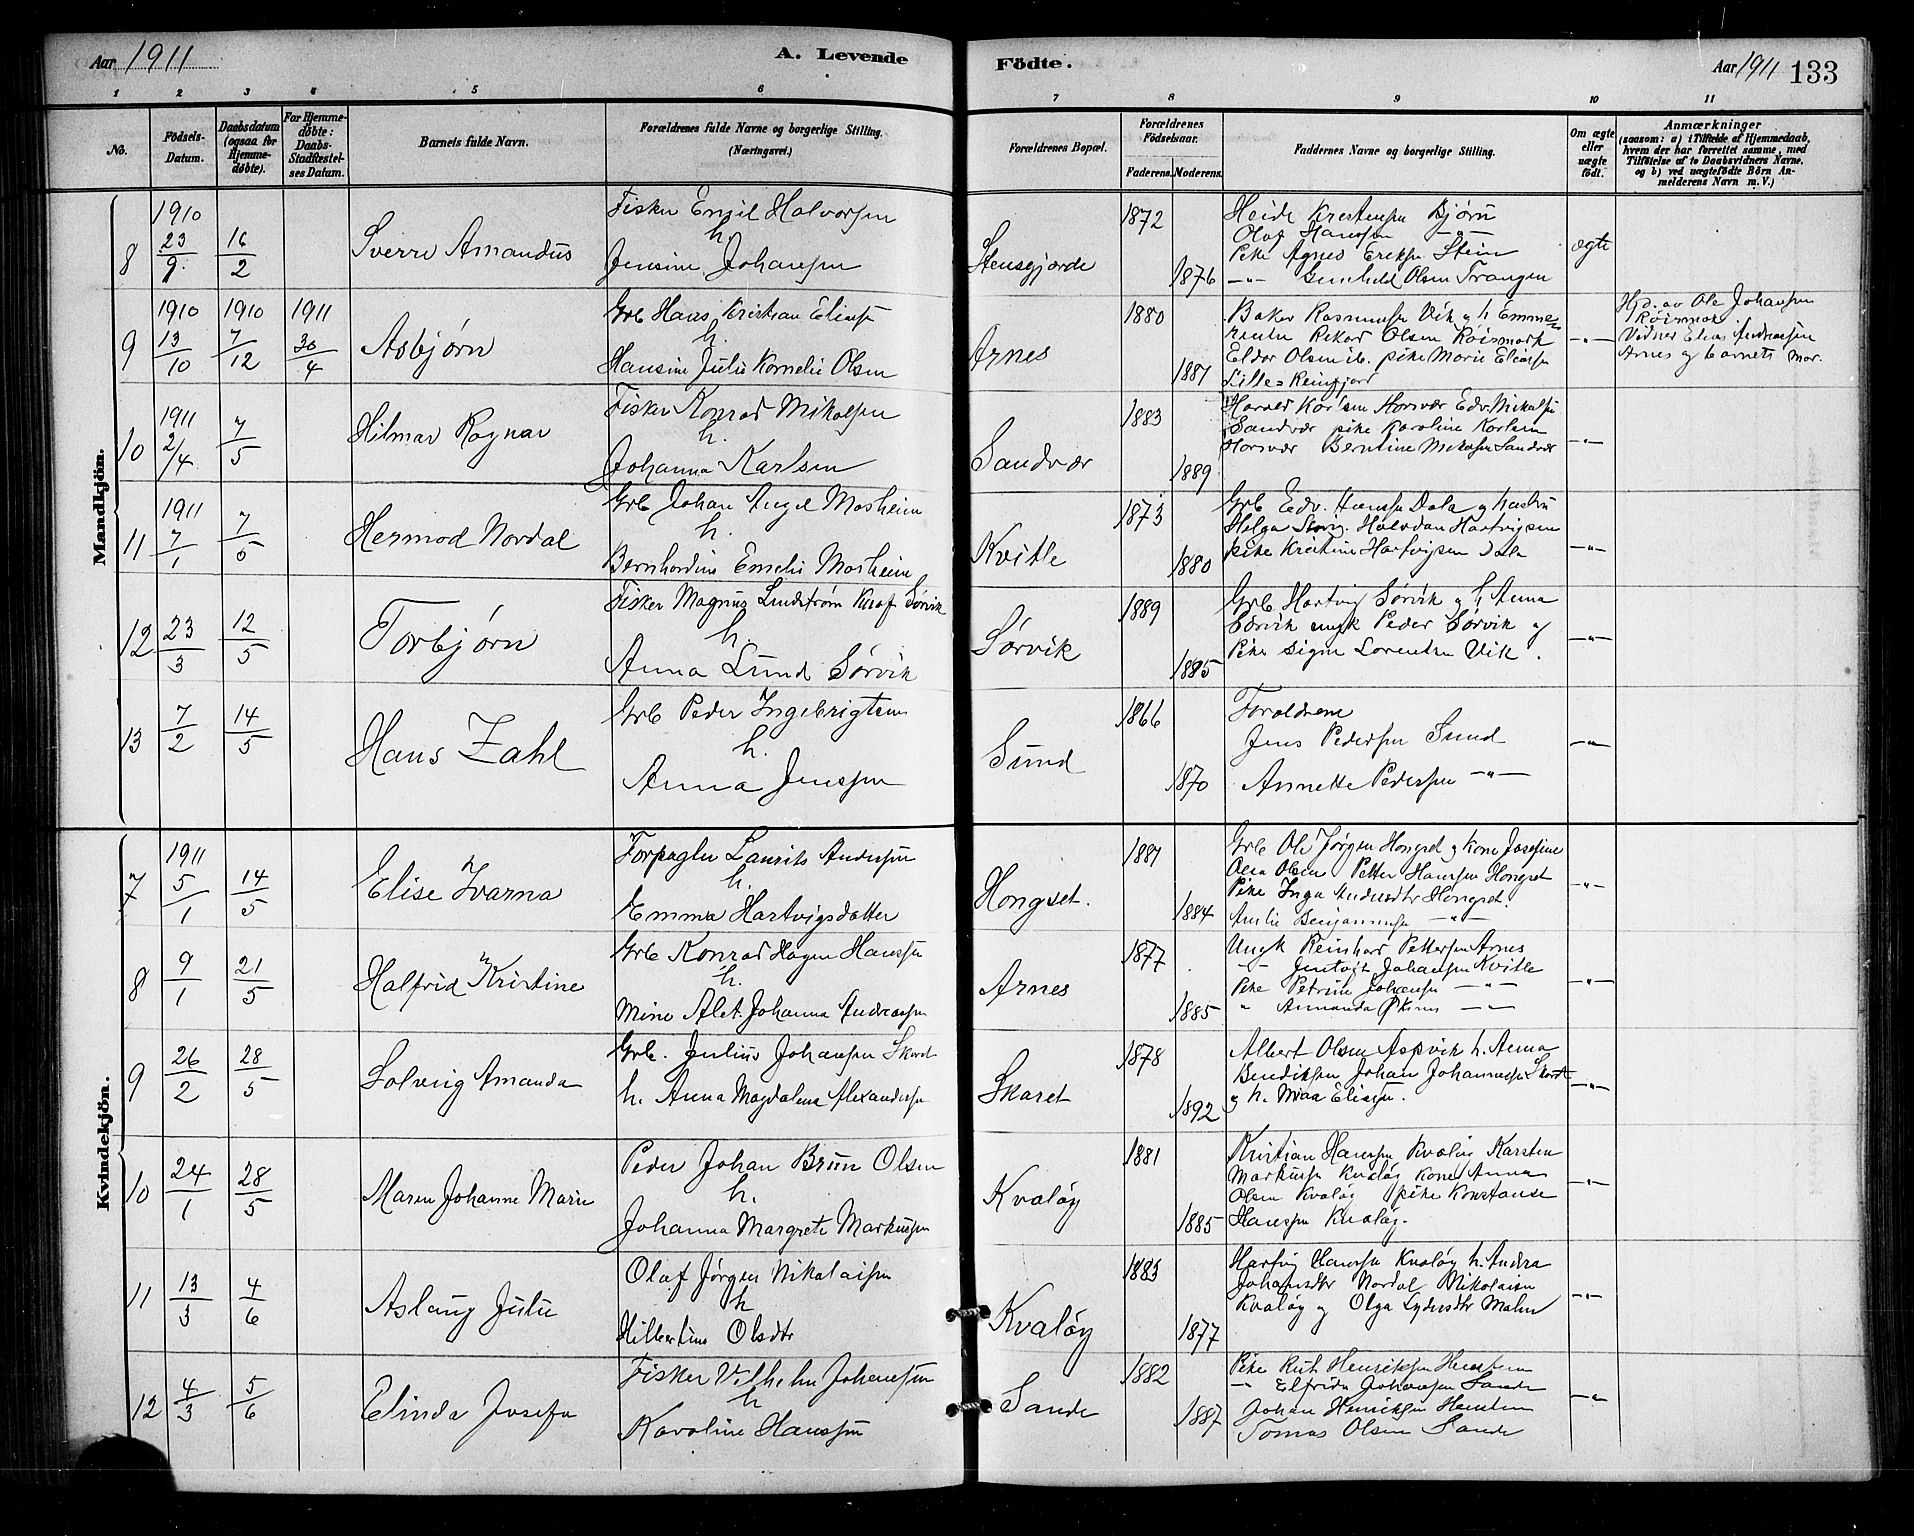 Aar 1911
A. Levende
Födte.
Aar 1911 133
1 2 3 4 5 6 7 8 9 10 11
No.
Födsels-Datum.
Daabsdatum (ogsaa for Hjemme-døbte).
For Hjemme-døbte: Daabs-Stadfæstel-ses Datum.
Barnets fulde Navn.
Forældrenes fulde Navne og borgerlige Stilling.
(Næringsvei.)
Forældrenes Bopæl.
Forældrenes Födselsaar.
Faderens. Moderens.
Faddernes Navne og borgerlige Stilling.
Om ægte eller uægte födt.
Anmærkninger
(saasom: a) i Tilfælde af Hjemmedaab,
hvem der har forrettet samme, med
Tilföielse af to Daabsvidners Navne,
og b) ved uægtefödte Börn An-
melderens Navn m. V.)
Mandkjön.
8 1910 23/9 16/2 Sverre Amandus
Fisker Emil Halvorsen
h.
Jensine Johansen
Stensgjorde 1872 1876
Heide Kristensen Bjørn
Olaf Hanssen —"—
Pike Agnes Eriksen Stein
—"— Gunhild Olsen Trangen
ægte
9 1910 13/10 1910 7/12 1911 30/4 Asbjørn
Grb Hans Kristian Eliassen
h.
Hansine Julie Kornelie Olsen
Arnes 1880 1887
Baker Rasmussen Vik og h Emme=
rentse Rikard Olsen Röismork
Eldor Olsen ib. pike Marie Eliassen
Lille=Reinfjord
—"—
Hjd. av Ole Johansen
Röismok
Vidner Elias Andreassen
Arnes og barnets Mor.
10 1911 2/4 7/5 Hilmar Ragnar
Fisker Konrad Mikalsen
h.
Johanna Karlsen
Sandvær 1883 1889
Harald Karlsen Horsvær Edv. Mikalsen
Sandvær pike Karoline Karlsen
Horsvær Berntine Mikalsen Sandvær
—"—
11 1911 7/1 7/5 Hermod Nordal
Grb Johan Angel Mosheim
h.
Bernhardine Emelie Mosheim
Kvitle 1873 1880
Grb Edv. Hanssen Dala og hustru
Helga Halvdan Hartvigsen
pike Kristine Hartvigsen Dala
—"—
12 23/3 12/5 Torbjørn
Fisker Magnus Lindstrøm Sørvik
h.
Anna Lund Sørvik
Sørvik 1889 1885
Grb Hartvig Sørvik og h Anna
Sørvik ungk Peder Sørvik og
Pike Signe Lorentsen Vik.
—"—
13 7/2 14/5 Hans Zahl
Grb Peder Ingebrigtsen
h.
Anna Jenssen
Sund 1866 1870
Forældrene
Jens Pedersen Sund
Annette Pedersen —"—
—"—
Kvindekjön.
7 1911 5/1 14/5 Elise Ivarna
Forpagter Laurits Andersen
h.
Emma Hartvigsdatter
Hongset. 1881 1884
Grb Ole Jørgen Hongset og Kone Josefine
Olea Olsen Petter Hanssen Hongset
Pike Inga Andersdtr Hongset.
Amlie Benjaminsen —"—
—"—
8 9/1 21/5 Halfrid Kristine
Grb Konrad Hagen Hanssen
h.
Mine Alet. Johanna Andreassen
Arnes 1877 1885
Ungk Reinhard Pettersen Arnes
—"— Johansen Kvitle
Pike Petrine Johansen —"—
" Amanda —"—
—"—
9 26/2 28/5 Solveig Amanda
Grb. Julius Johansen Skaret
h. Anna Magdalena Alexandersen
Skaret 1878 1892
Albert Olsen Aspvik h. Anna
Bendiksen Johan Johannessen Skaret
og h. Eliassen.
—"—
10 24/1 28/5 Maren Johanne Marie
Peder Johan Brun Olsen
h.
Johanna Margrete Markussen
Kvaløy 1881 1885
Kristian Hanssen Kvaløy Karsten
Markussen Kvaløy Kone Anna
Olsen Kvaløy pike Konstanse
Hanssen Kvaløy.
—"—
11 13/3 4/6 Aslaug Julie
Olaf Jørgen Nikolaisen
h
Hilbertine Olsdtr
Kvaløy 1885 1877
Hartvig Hanssen Kvaløy h. Andra
Johansdtr Nordal Nikolaisen
Kvaløy og Olga Lydersdtr Malm
—"—
12 4/3 5/6 Elinda Josefa
Fisker Vilhelm Johanssen
h
Karoline Hanssen
Sande 1882 1887
Pike Rut Henriksen
—"— Elfrida Johansen Sande
Johan Henriksen
Tomas Olsen Sande
—"—